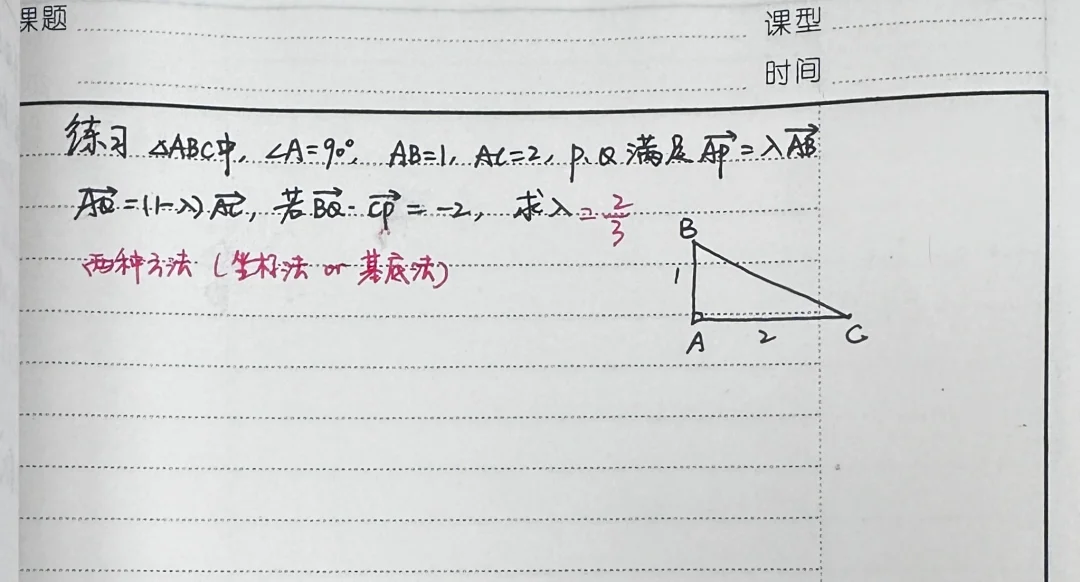 课题
课型
时间
练习 △ABC中, ∠A=90°, AB=1, AC=2, P、Q 满足 $\overrightarrow{AP}$ = λ$\overrightarrow{AB}$
$\overrightarrow{AQ}$ = (1-λ) $\overrightarrow{AC}$, 若 $\overrightarrow{BQ}$ · $\overrightarrow{CP}$ = -2, 求λ = $\frac{2}{3}$
两种方法 (坐标法 or 基底法)
B
1
A
2
C